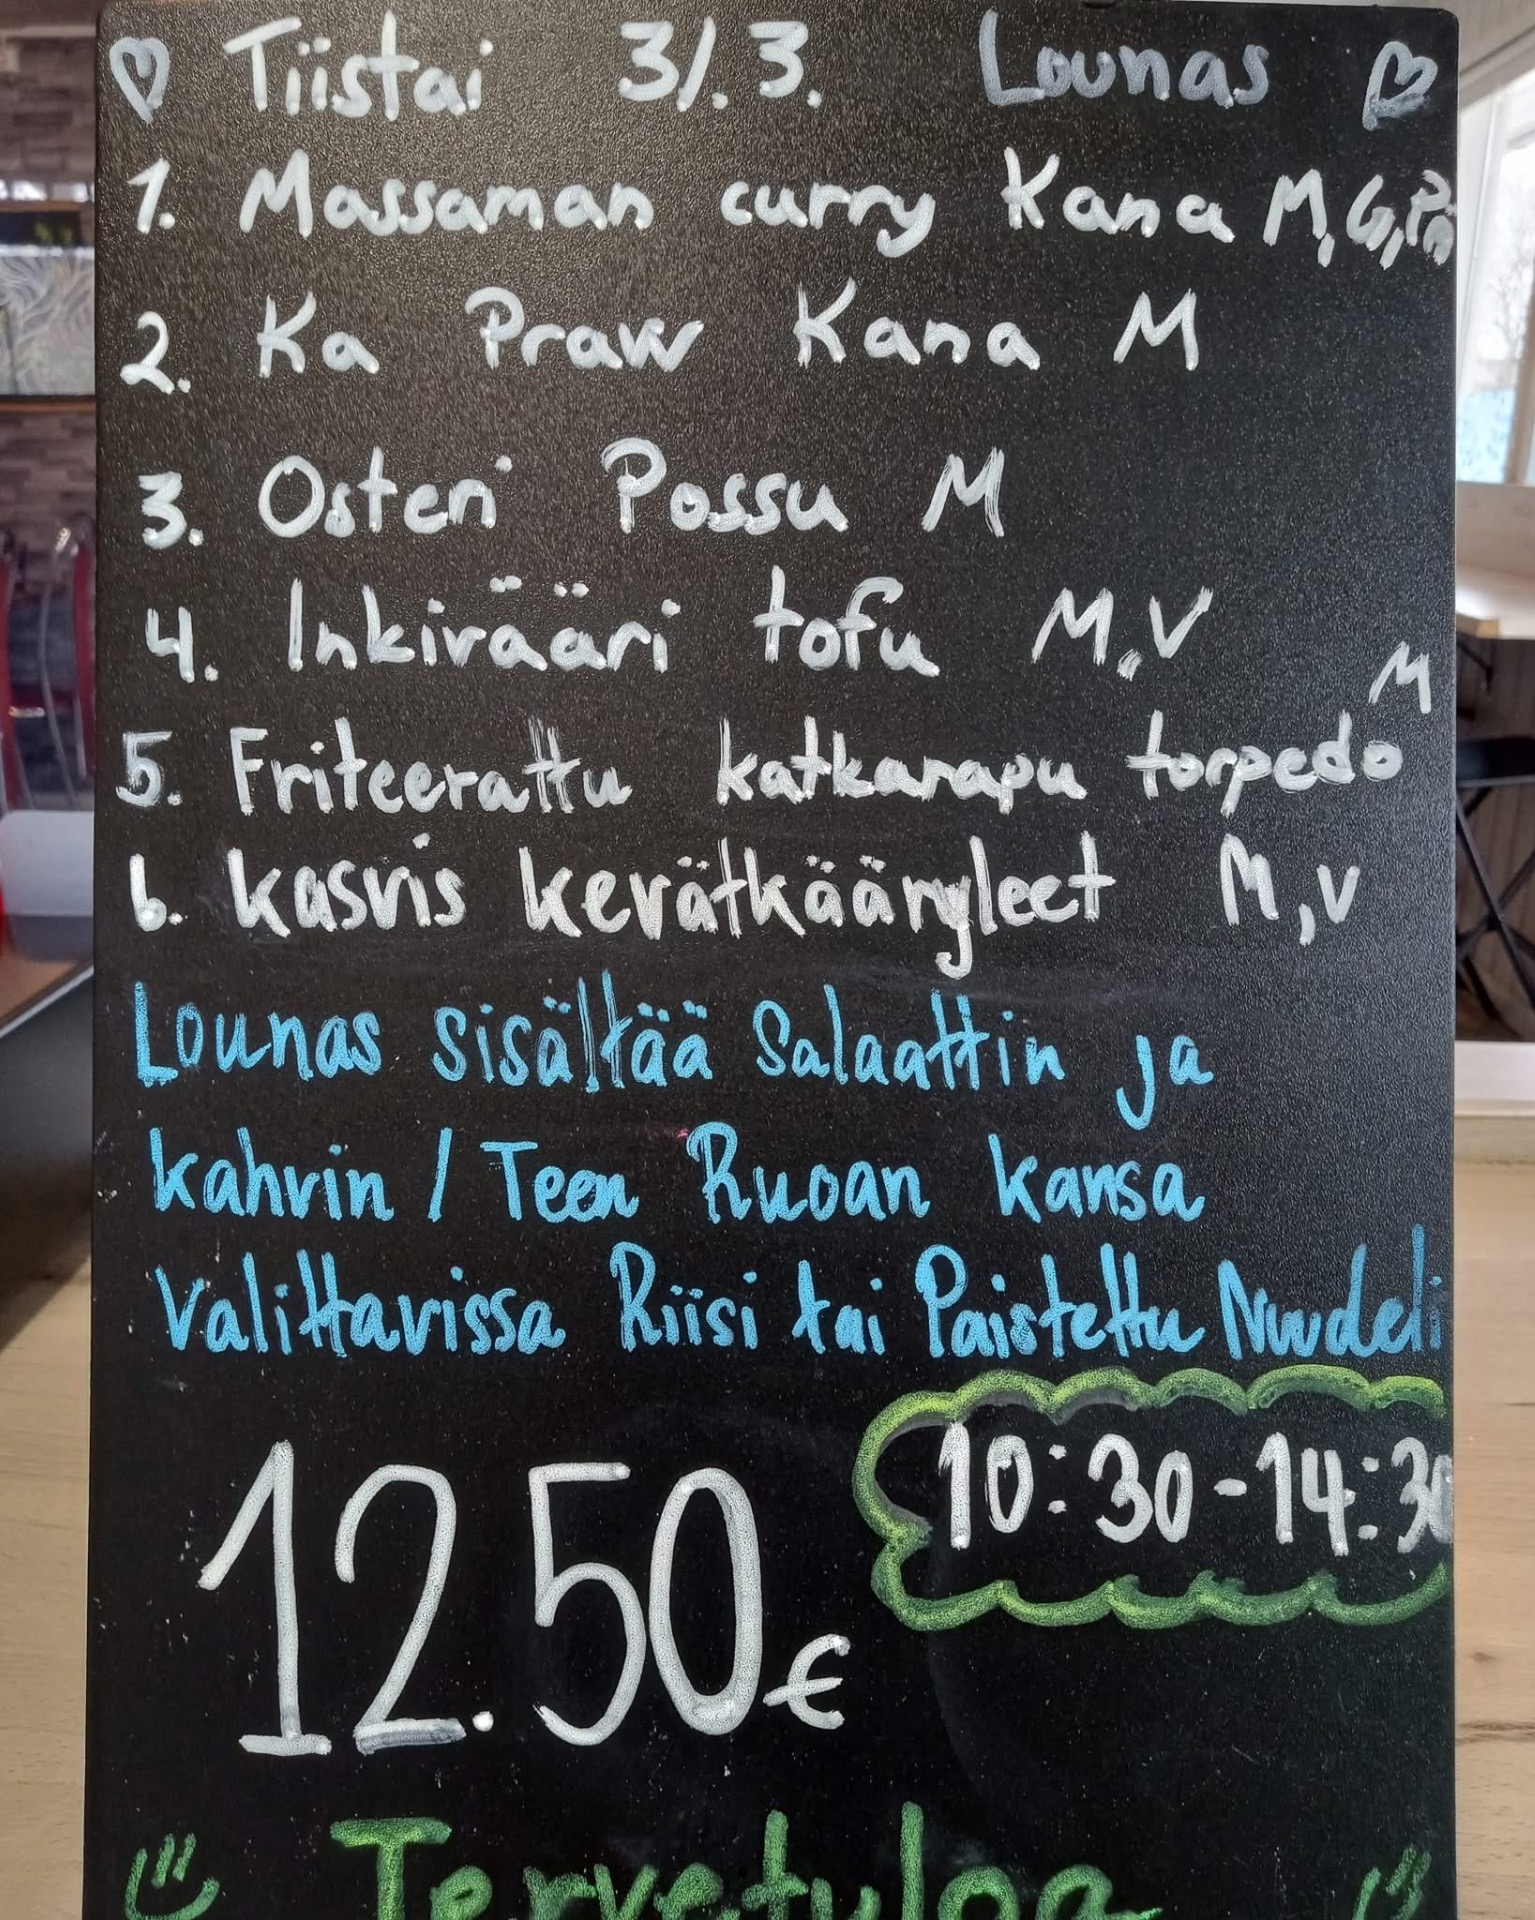 Tiistai 3/.3. Lounas
1. Massaman curry Kana M,G,Pä
2. Ka Praw Kana M
3. Osteri Possu M
4. Inkivääri tofu M,V
5. Friteerattu katkarapu torpedo M
6. kasvis kevätkääryleet M,V
Lounas sisältää Salaattin ja
kahvin / Teen Ruoan kansa
Valittavissa Riisi tai Paistettu Nuudeli
10:30-14:30
12.50€
Tervetuloa